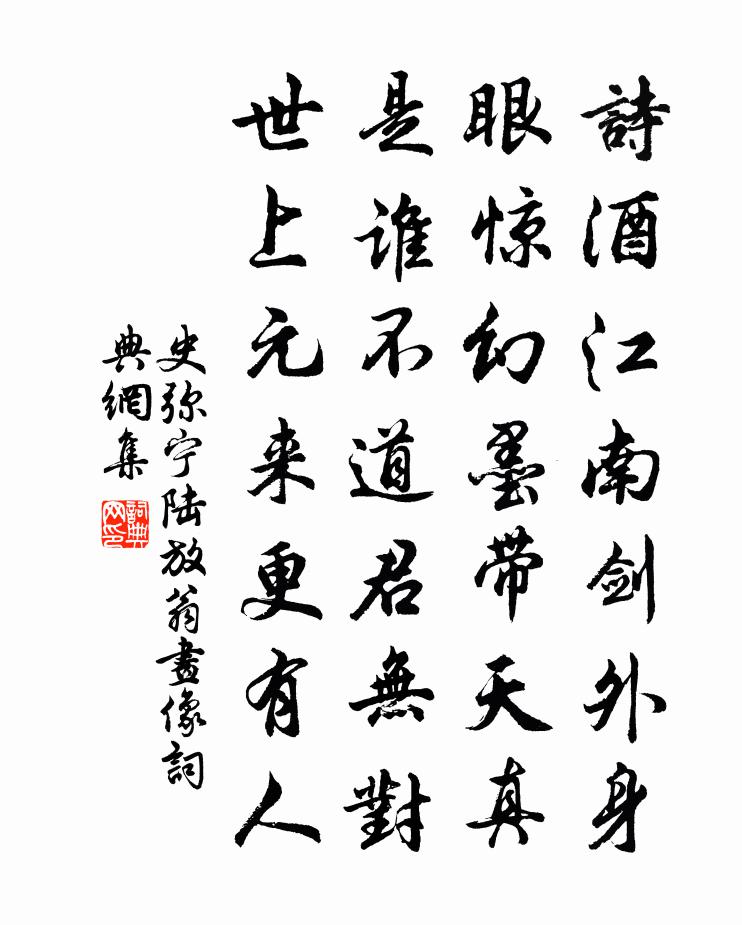 詩酒江南剑外身
眼惊幻墨带天真
是誰不道君無對
世上元来更有人
史弥宁陆放翁畫像詞
典網集
詞典
网印